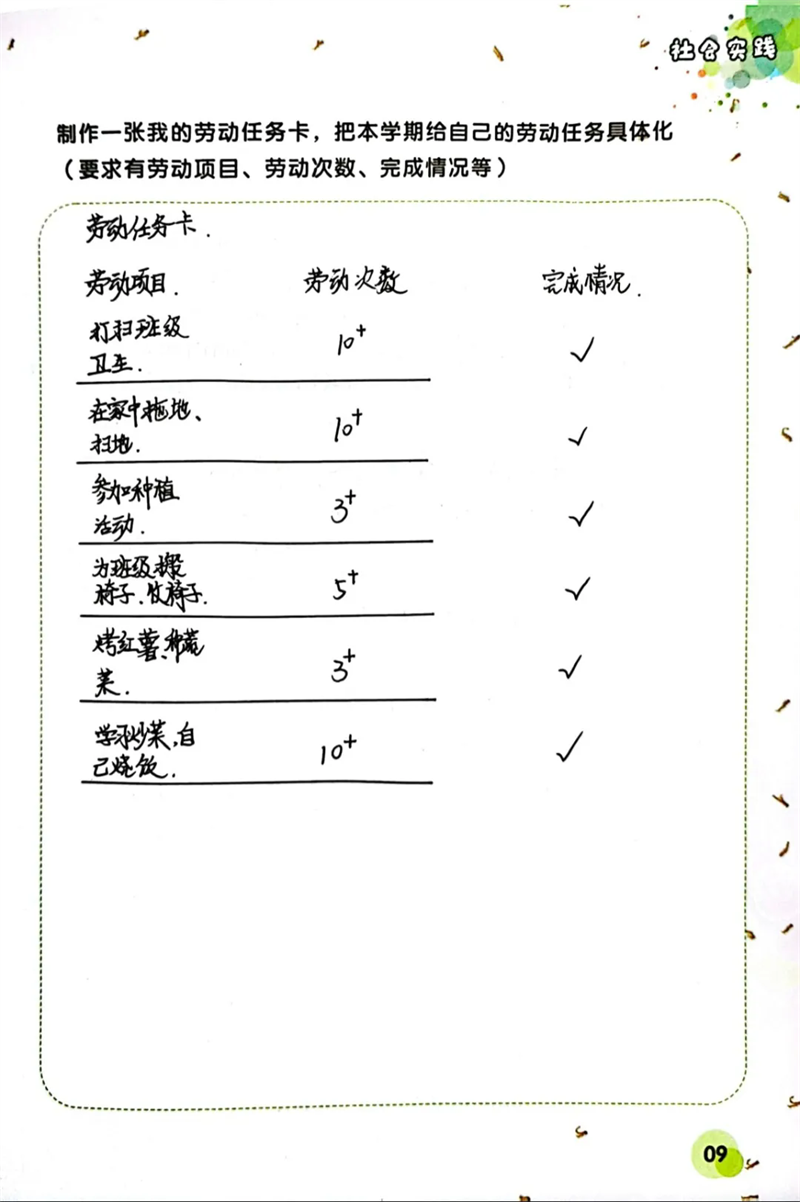 社会实践
制作一张我的劳动任务卡，把本学期给自己的劳动任务具体化
（要求有劳动项目、劳动次数、完成情况等）
劳动任务卡.
劳动项目. 劳动次数 完成情况.
打扫班级
卫生. 10+ ✓
在家中拖地、
扫地. 10+ ✓
参加种植
活动. 3+ ✓
为班级搬
椅子、放椅子. 5+ ✓
烤红薯、种蔬
菜. 3+ ✓
学习炒菜,自
己烧饭. 10+ ✓
09